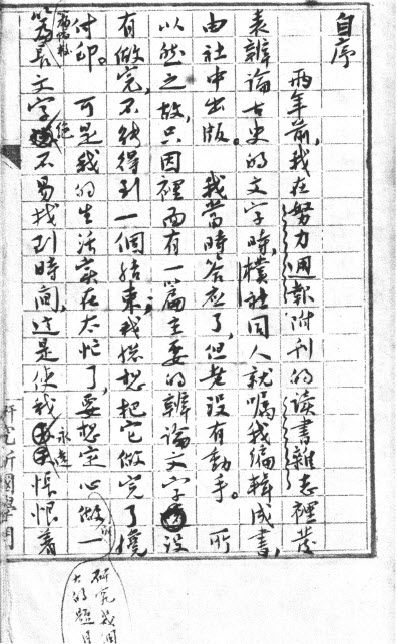 自序
兩年前,我在努力週報附刊的读書雜志裡发
表辨論古史的文字時,樸社同人就嘱我編輯成書,
由社中出版。我當時答应了,但老没有動手。所
以然之故,只因裡面有一篇主要的辨論文字没
有做完,不能得到一個結束;我總想把它做完了才
付印。可是我的生活实在太忙了,要想定心做一
篇長文字,絕不易找到時間,这是使我永遠悵恨着
研究所國學門
研究我國
大的題目